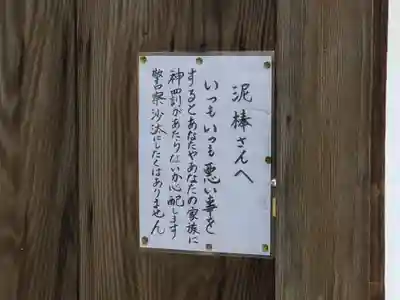 泥棒さんへ
いつもいつも悪い事を
するとあなたやあなたの家族に
神罰があたらないか心配します
警察沙汰にしたくはありません